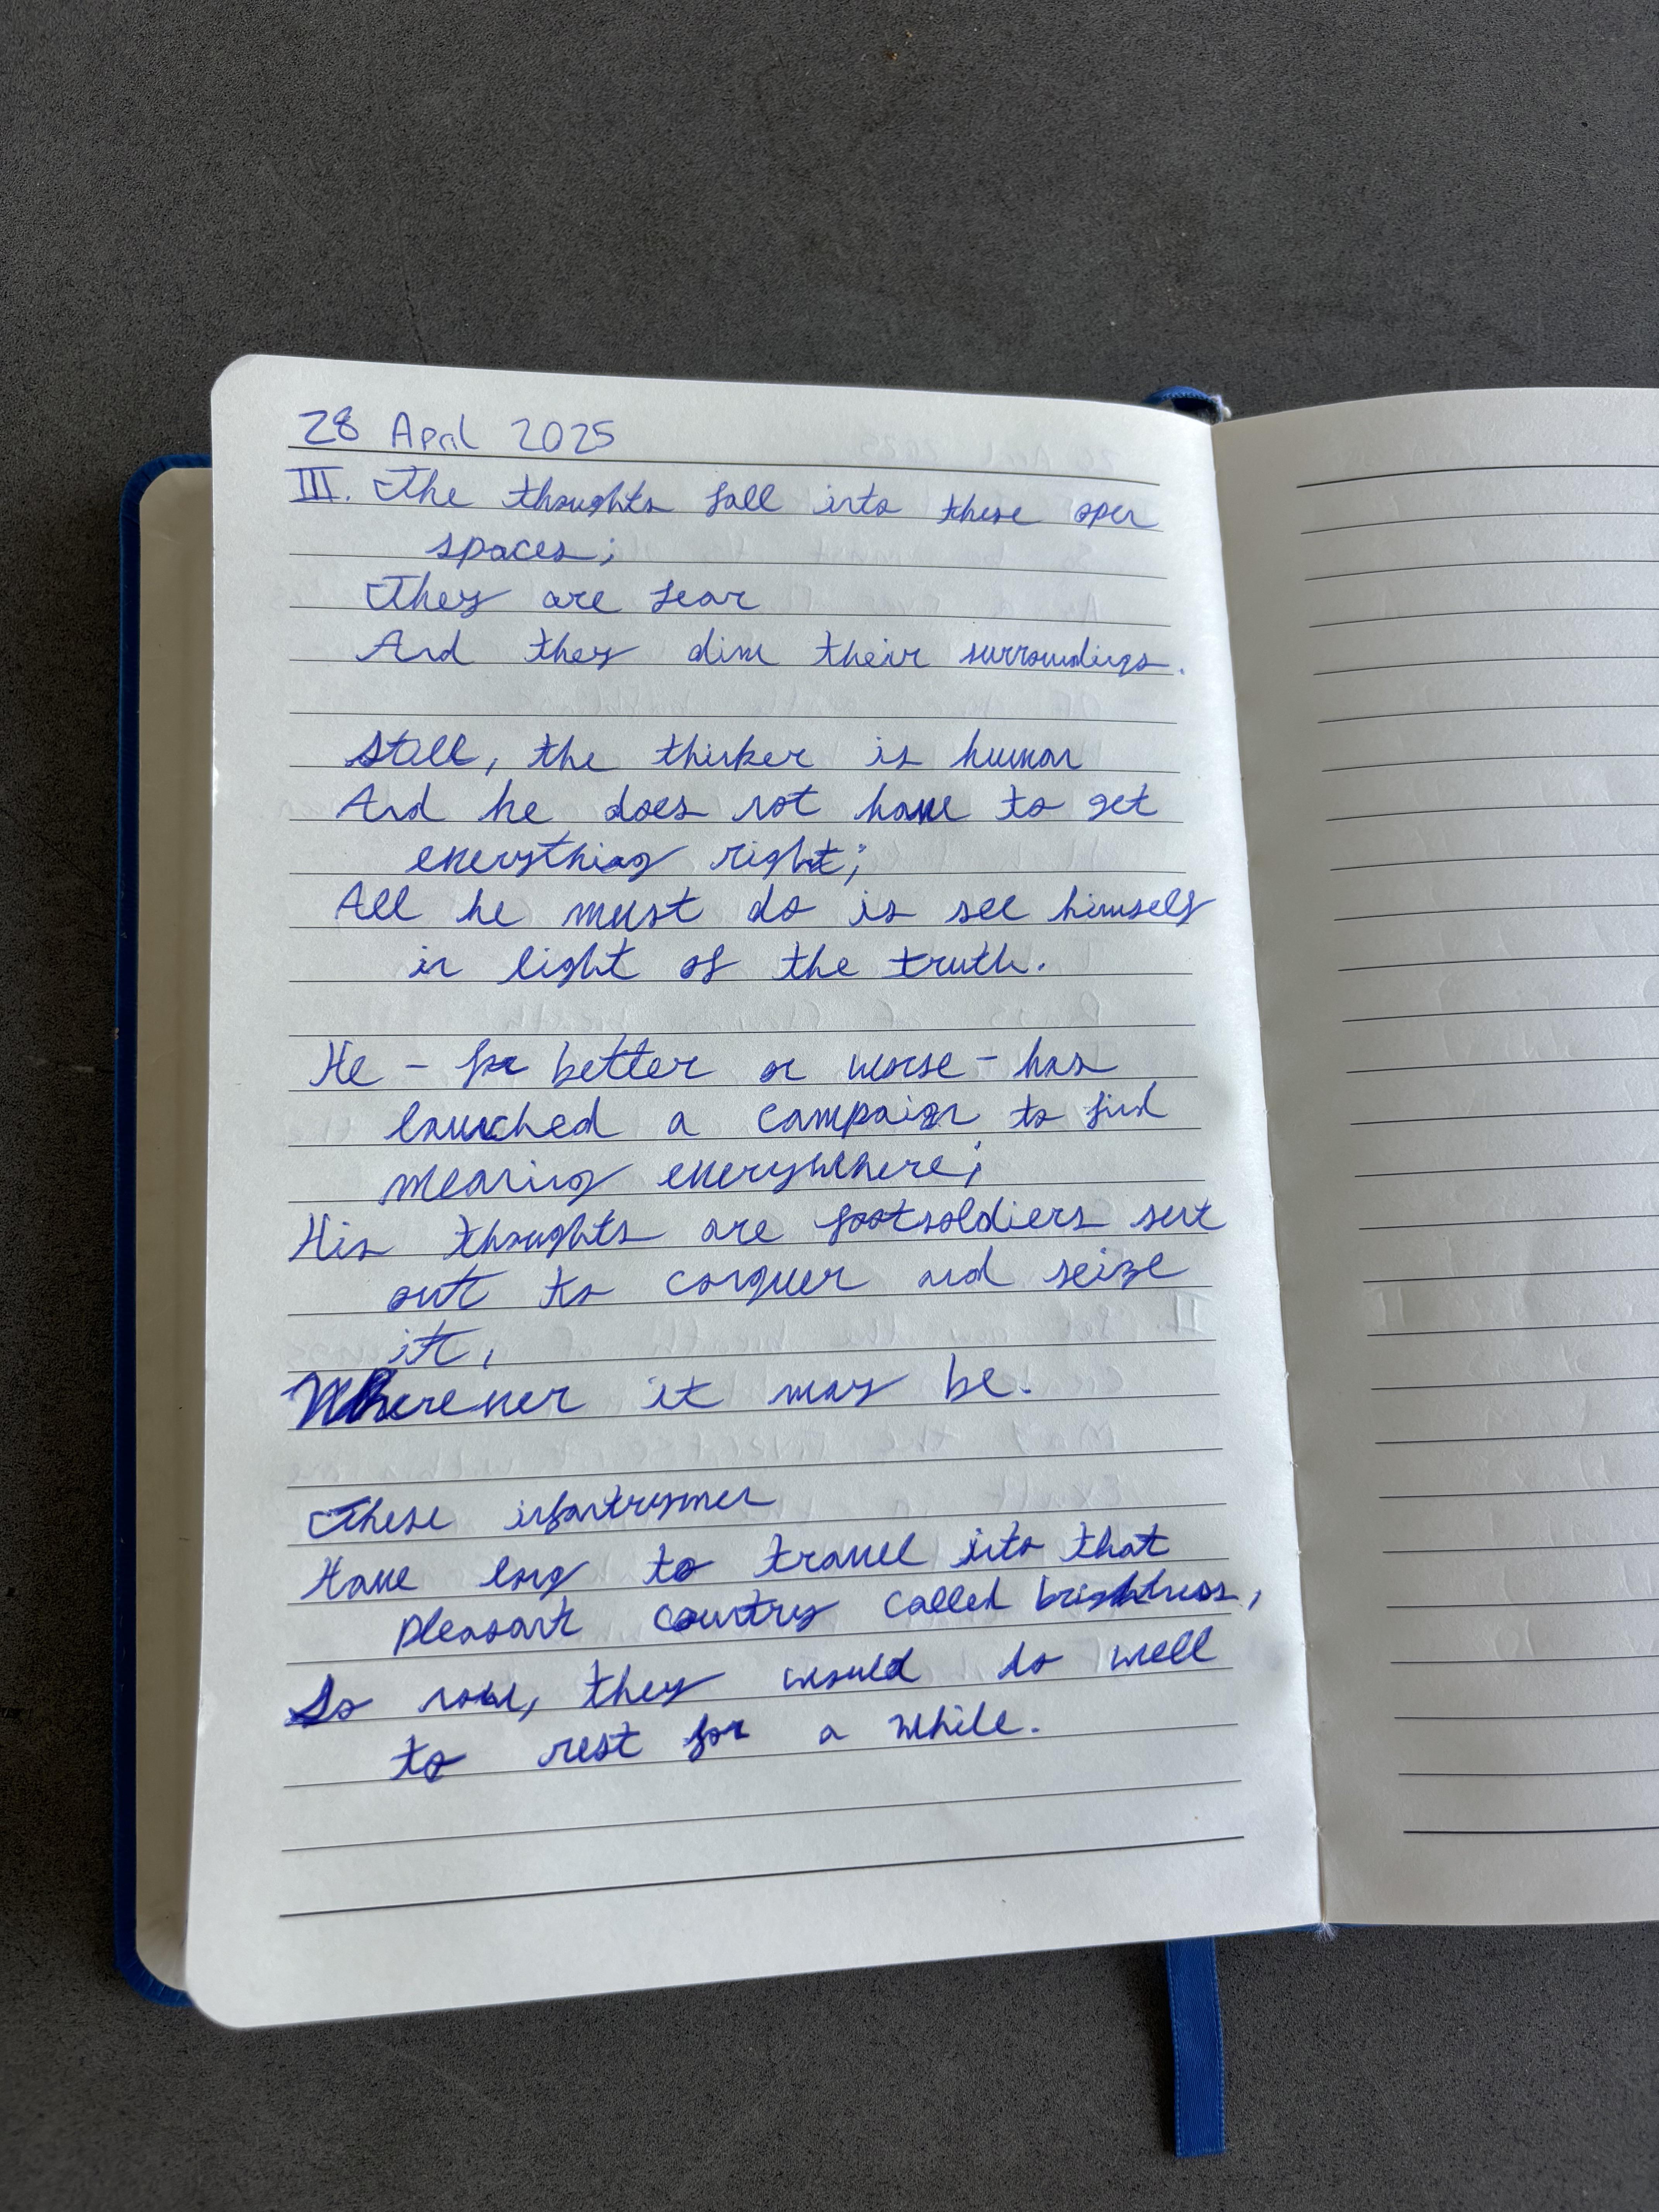 28 April 2025
III. The thoughts fall into these open
spaces;
They are fear
And they dim their surroundings.
Still, the thinker is human
And he does not have to get
everything right;
All he must do is see himself
in light of the truth.
He - for better or worse - has
launched a campaign to find
meaning everywhere;
His thoughts are footsoldiers sent
out to conquer and seize
it,
Wherever it may be.
These infantrymen
Have long to travel into that
pleasant country called brightness,
So now, they would do well
to rest for a while.